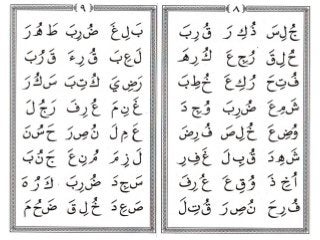 ٨
جُلِسَ ذُكِرَ قُرِبَ
خُلِقَ رُجِعَ كُرِهَ
فُتِحَ رُكِعَ خُطِبَ
سُمِعَ ضُرِبَ وُجِدَ
وُضِعَ خُلِصَ فُرِضَ
شُهِدَ قُبِلَ غُفِرَ
أُخِذَ وُقِعَ عُرِفَ
فُرِحَ نُصِرَ قُتِلَ
٩
بَلِغَ ضُرِبَ طَهُرَ
لَعِبَ قُرِءَ قَرُبَ
رَضِيَ كُتِبَ سَكُرَ
غَنِمَ عُرِفَ رَجُلَ
عَمِلَ نُصِرَ حَسُنَ
لَزِمَ مُنِعَ جَنُبَ
سَجِدَ ضُرِبَ كَرُهَ
صَعِدَ خُلِقَ ضَخُمَ